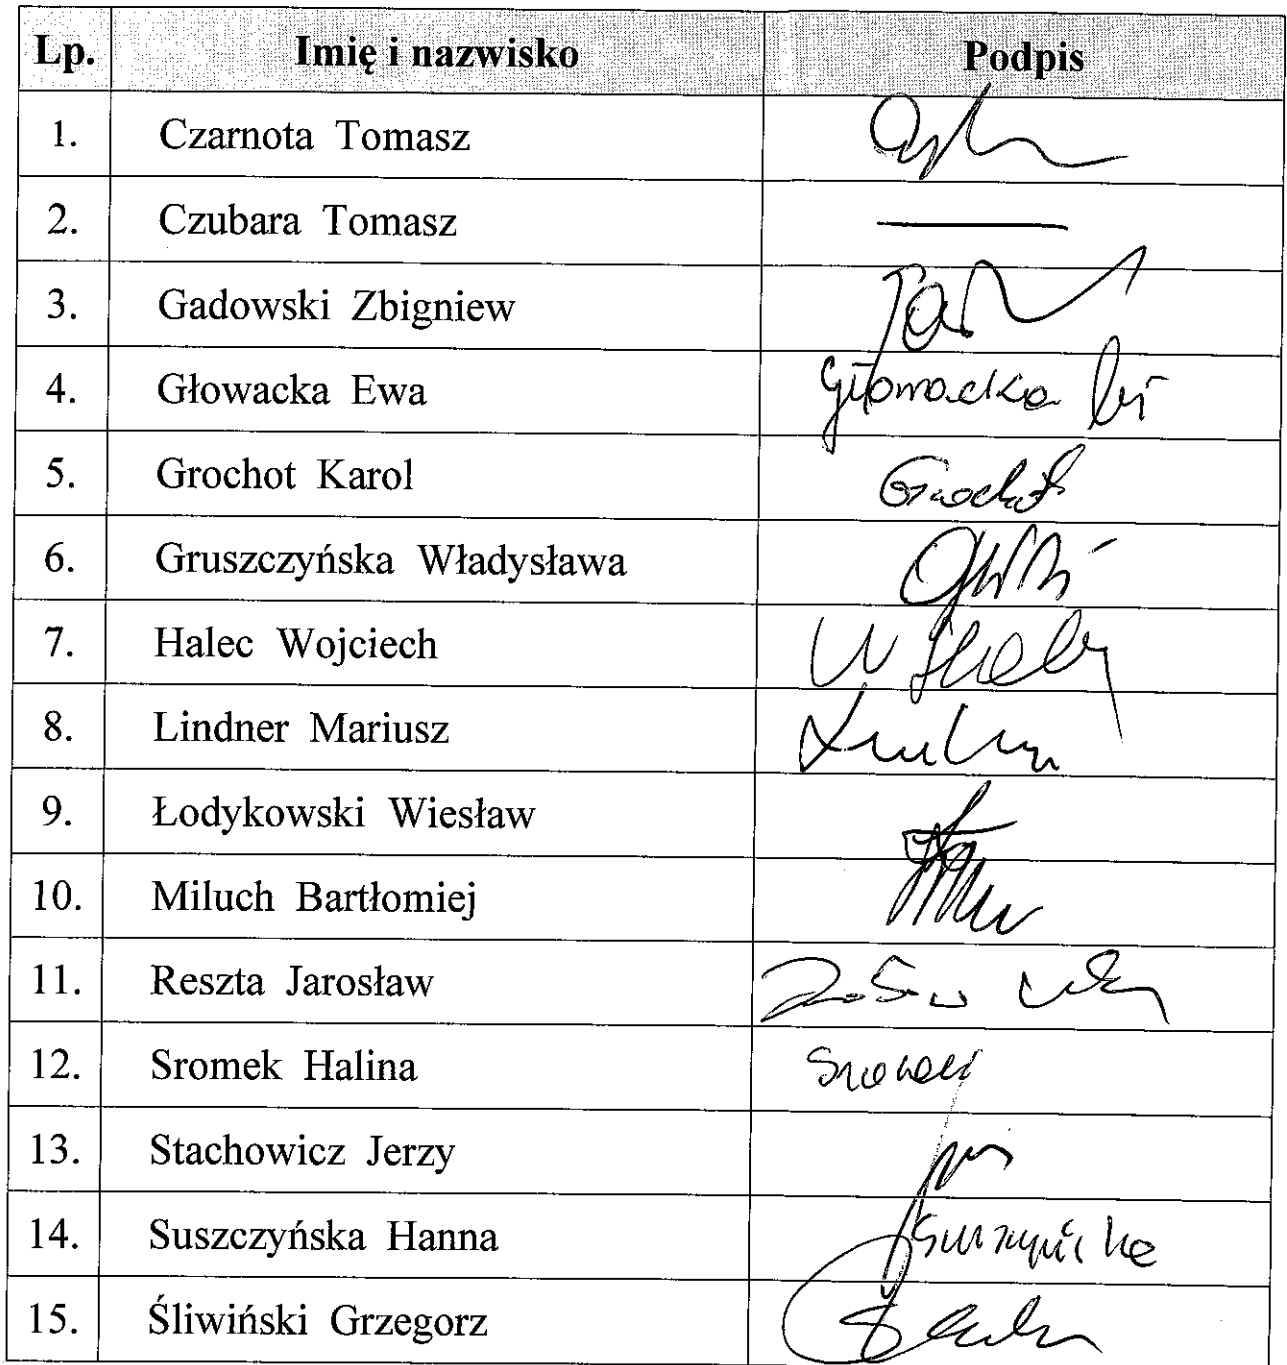 Lp. Imię i nazwisko Podpis
1. Czarnota Tomasz
2. Czubara Tomasz
3. Gadowski Zbigniew
4. Głowacka Ewa Głowacka
5. Grochot Karol Grochot
6. Gruszczyńska Władysława
7. Halec Wojciech
8. Lindner Mariusz
9. Łodykowski Wiesław
10. Miluch Bartłomiej
11. Reszta Jarosław
12. Sromek Halina
13. Stachowicz Jerzy
14. Suszczyńska Hanna
15. Śliwiński Grzegorz